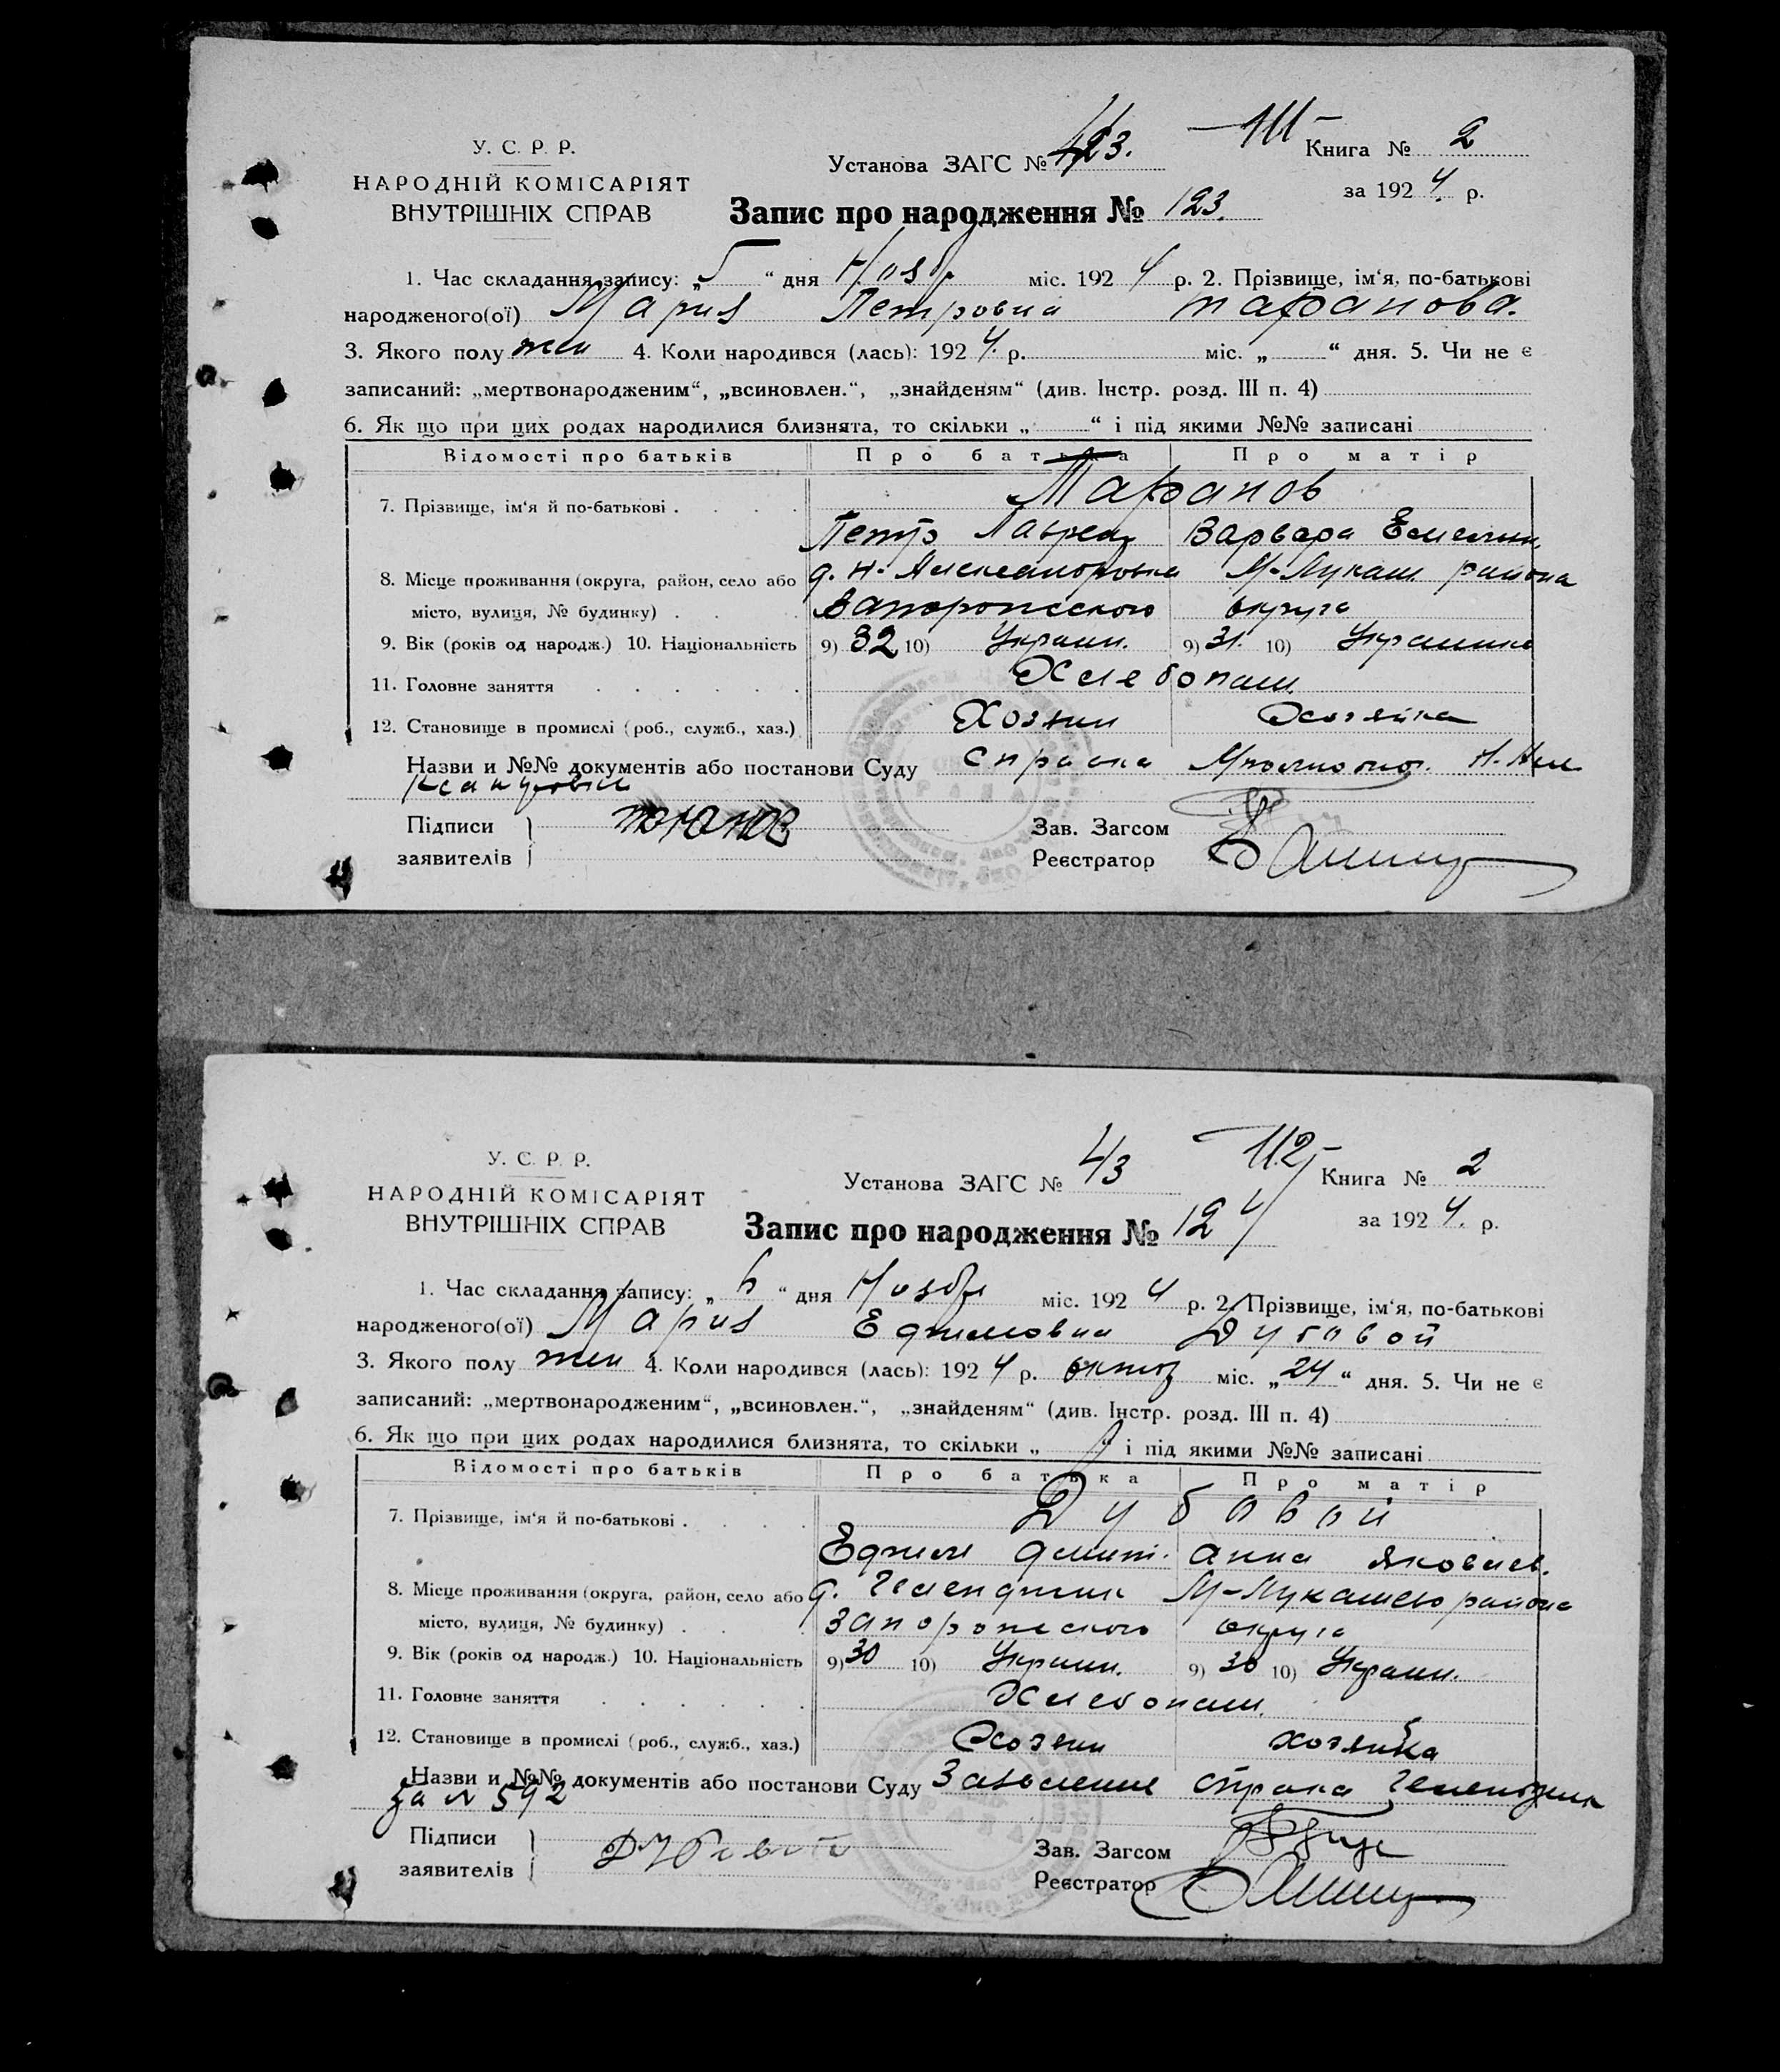 У. С. Р. Р.
НАРОДНІЙ КОМІСАРІЯТ
ВНУТРІШНІХ СПРАВ
Установа ЗАГС № 423.
Книга № 2
за 1924. р.
Запис про народження № 123.
1. Час складання запису: „5“ дня Нояб. міс. 1924 р. 2. Прізвище, ім‘я, по-батькові
народженого(ої) Мария Петровна
3. Якого полу жен 4. Коли народився (лась): 1924. р. міс. „ “ дня. 5. Чи не є
записаний: „мертвонародженим“, „всиновлен.“, „знайденям“ (див. Інстр. розд. III п. 4)
6. Як що при цих родах народилися близнята, то скільки „ “ і під якими №№ записані
Відомості про батьків Про батька Про матір
7. Прізвище, ім‘я й по-батькові . . . .
Петр Лаврен Варвара Емельян.
8. Місце проживання (округа, район, село або д. Н-Александровка М-Лукаш района
місто, вулиця, № будинку) . . Запорожского округа
9. Вік (років од народж.) 10. Національність 9) 32 10) Украин. 9) 31. 10) Украинка
11. Головне заняття . . . . . . Хлебопаш.
12. Становище в промислі (роб., служб., хаз.) Хозяин Хозяйка
Назви и №№ документів або постанови Суду справка
Підписи
заявителів
Зав. Загсом
Реєстратор
У. С. Р. Р.
НАРОДНІЙ КОМІСАРІЯТ
ВНУТРІШНІХ СПРАВ
Установа ЗАГС № 43
112
Книга № 2
за 1924. р.
Запис про народження № 124
1. Час складання запису: „6“ дня Ноябр міс. 1924 р. 2. Прізвище, ім‘я, по-батькові
народженого(ої) Мария Ефимовна Дубовой
3. Якого полу жен 4. Коли народився (лась): 1924 р. октяб міс. „24“ дня. 5. Чи не є
записаний: „мертвонародженим“, „всиновлен.“, „знайденям“ (див. Інстр. розд. III п. 4)
6. Як що при цих родах народилися близнята, то скільки „ “ і під якими №№ записані
Відомості про батьків Про батька Про матір
7. Прізвище, ім‘я й по-батькові . . . . Дубовой
Ефим Дмит. Анна Яковлев.
8. Місце проживання (округа, район, село або д. Геленджик М-Лукашево района
місто, вулиця, № будинку) . . Запорожского округа
9. Вік (років од народж.) 10. Національність 9) 30 10) Украин. 9) 30 10) Украин.
11. Головне заняття . . . . . . Хлебопаш.
12. Становище в промислі (роб., служб., хаз.) Хозяин хозяйка
Назви и №№ документів або постанови Суду Заявление справка Геленджик
за № 592
Підписи
заявителів
Дубовой
Зав. Загсом
Реєстратор